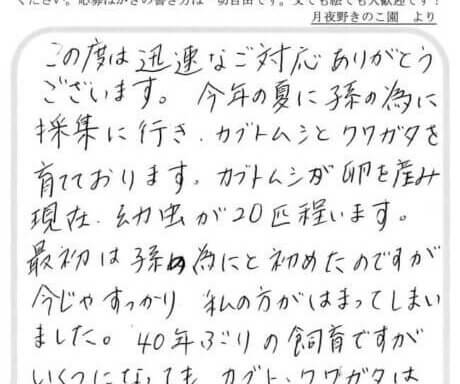 ください。応募はがきの書き方は一切自由です。文でも絵でも大歓迎です！
月夜野きのこ園　より
この度は迅速なご対応ありがとう
ございます。今年の夏に孫の為に
採集に行き、カブトムシとクワガタを
育てております。カブトムシが卵を産み
現在、幼虫が20匹程います。
最初は孫の為にと初めたのですが
今じゃすっかり私の方がはまってしまい
ました。40年ぶりの飼育ですが
いくつになっても、カブト、クワガタは